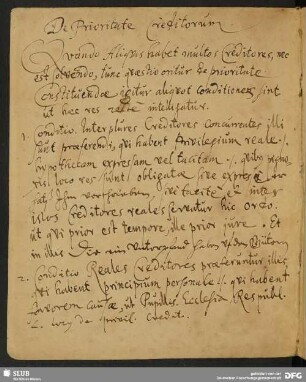 De Prioritate Creditorum
Quando Aliquis habet multos Creditores, nec
est solvendo, tunc quæstio oritur de prioritate
Constituendæ igitur aliquot conditiones, sint
ut hæc res recte intelligatur.
1. Conditio. Inter plures Creditores concurrentes illi
sunt præferendi, qui habent Privilegium reale
hypothecam expressam vel tacitam
res sunt obligatæ sive expresse
vel tacite et inter
istos Creditores reales servatur hic ordo.
ut qui prior est tempore, ille prior jure. Et
in illis
2. Conditio Reales Creditores præferuntur illis,
qui habent principium personale qui habent
favorem causæ, ut Pupilli, Ecclesia Respubl.
de privil. credit.
SLUB
DFG